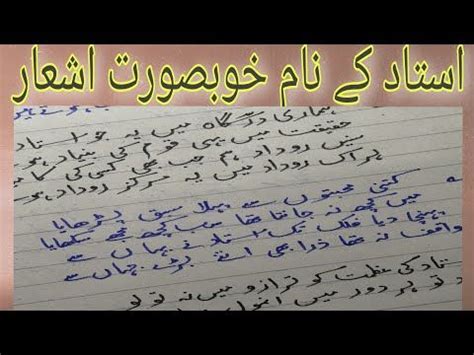 استاد کے نام خوبصورت اشعار
ہماری درسگاہ میں یہ جو استاد
حقیقت میں یہی قوم کی بنیاد ہو
سنیں روداد ہم جب بھی کسی کی
ہر اک روداد میں یہ مرکز روداد ہو
کتنی محبتوں سے پہلا سبق پڑھایا
میں کچھ نہ جانتا تھا سب کچھ مجھے سکھایا
پہنچا دیا فلک تک استاد نے یہاں سے
واقف نہ تھا ذرا بھی اتنے بڑے جہاں سے
استاد کی عظمت کو ترازو میں نہ تولو
ہر دور میں